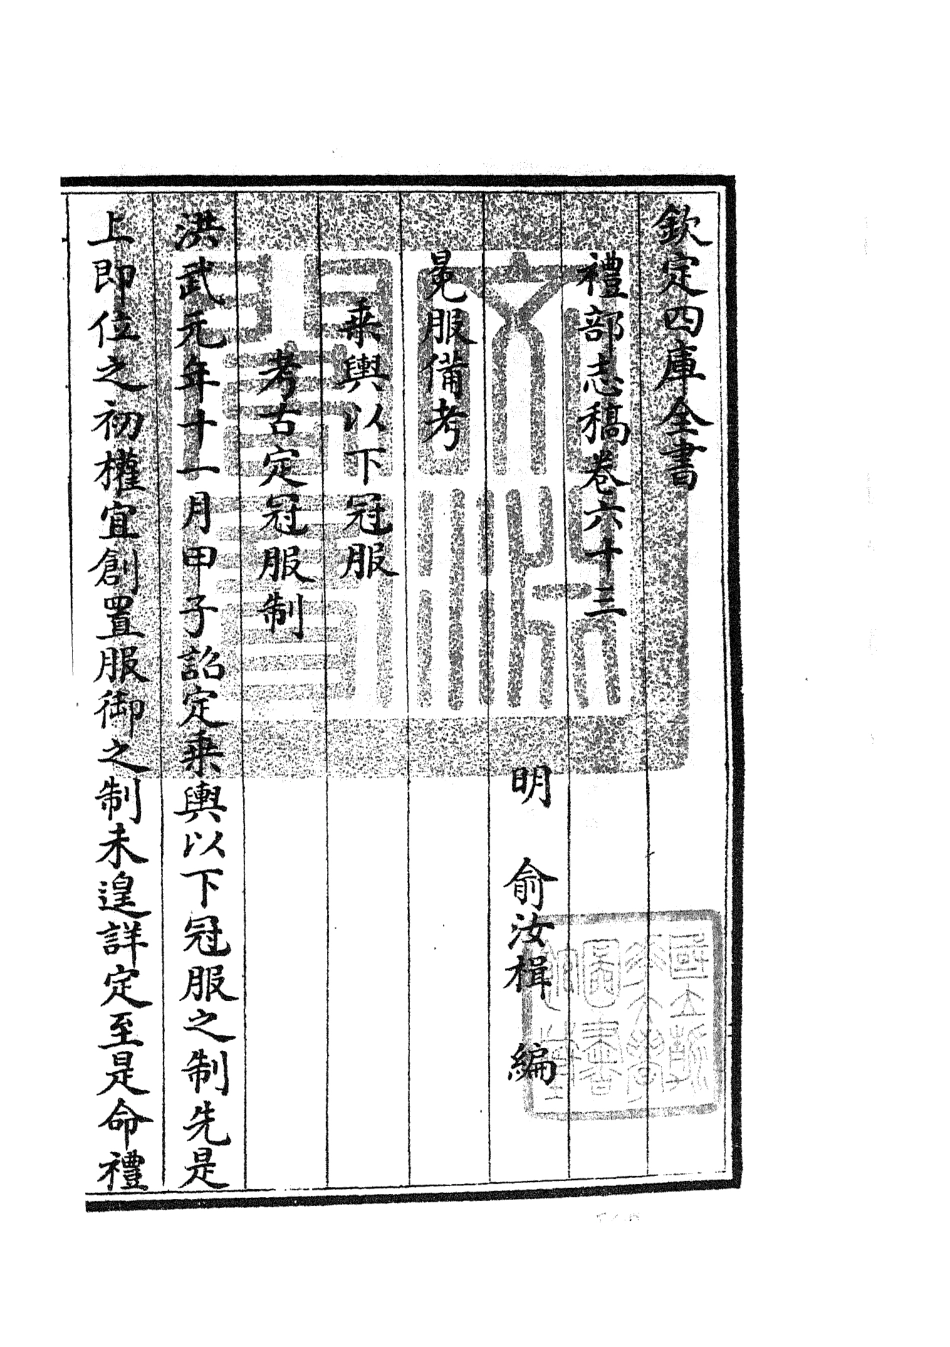 欽定四庫全書
禮部志稿卷六十三
明 俞汝楫 編
冕服備考
乗輿以下冠服
考古定冠服制
洪武元年十一月甲子詔定乗輿以下冠服之制先是
上即位之初權宜創置服御之制未遑詳定至是命禮